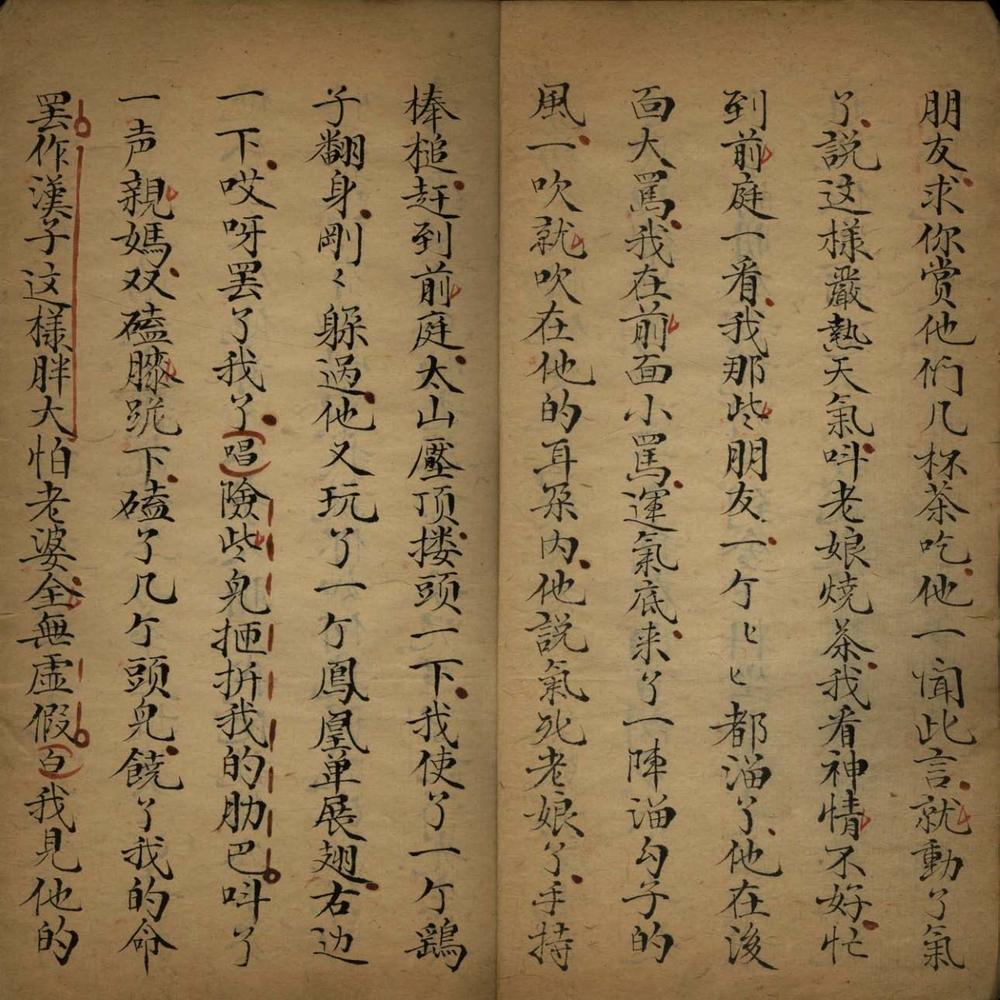 朋友求你賞他們几杯茶吃他一聞此言就動了氣
了說这樣嚴熱天氣呌老娘燒茶我看神情不好忙
到前庭一看我那些朋友一个ヒヒ都溜了他在後
面大罵我在前面小罵運氣底来了一陣溜勾子的
風一吹就吹在他的耳朶内他說氣死老娘了手持
棒槌赶到前庭太山壓顶搂頭一下我使了一个鷂
子翻身剛々躱過他又玩了一个鳳凰單展翅右边
一下哎呀罢了我了唱險些皃拖拆我的肋巴呌了
一声親媽双磕膝跪下磕了几个頭皃饒了我的命
罢作漢子这樣胖大怕老婆全無虛假白我見他的